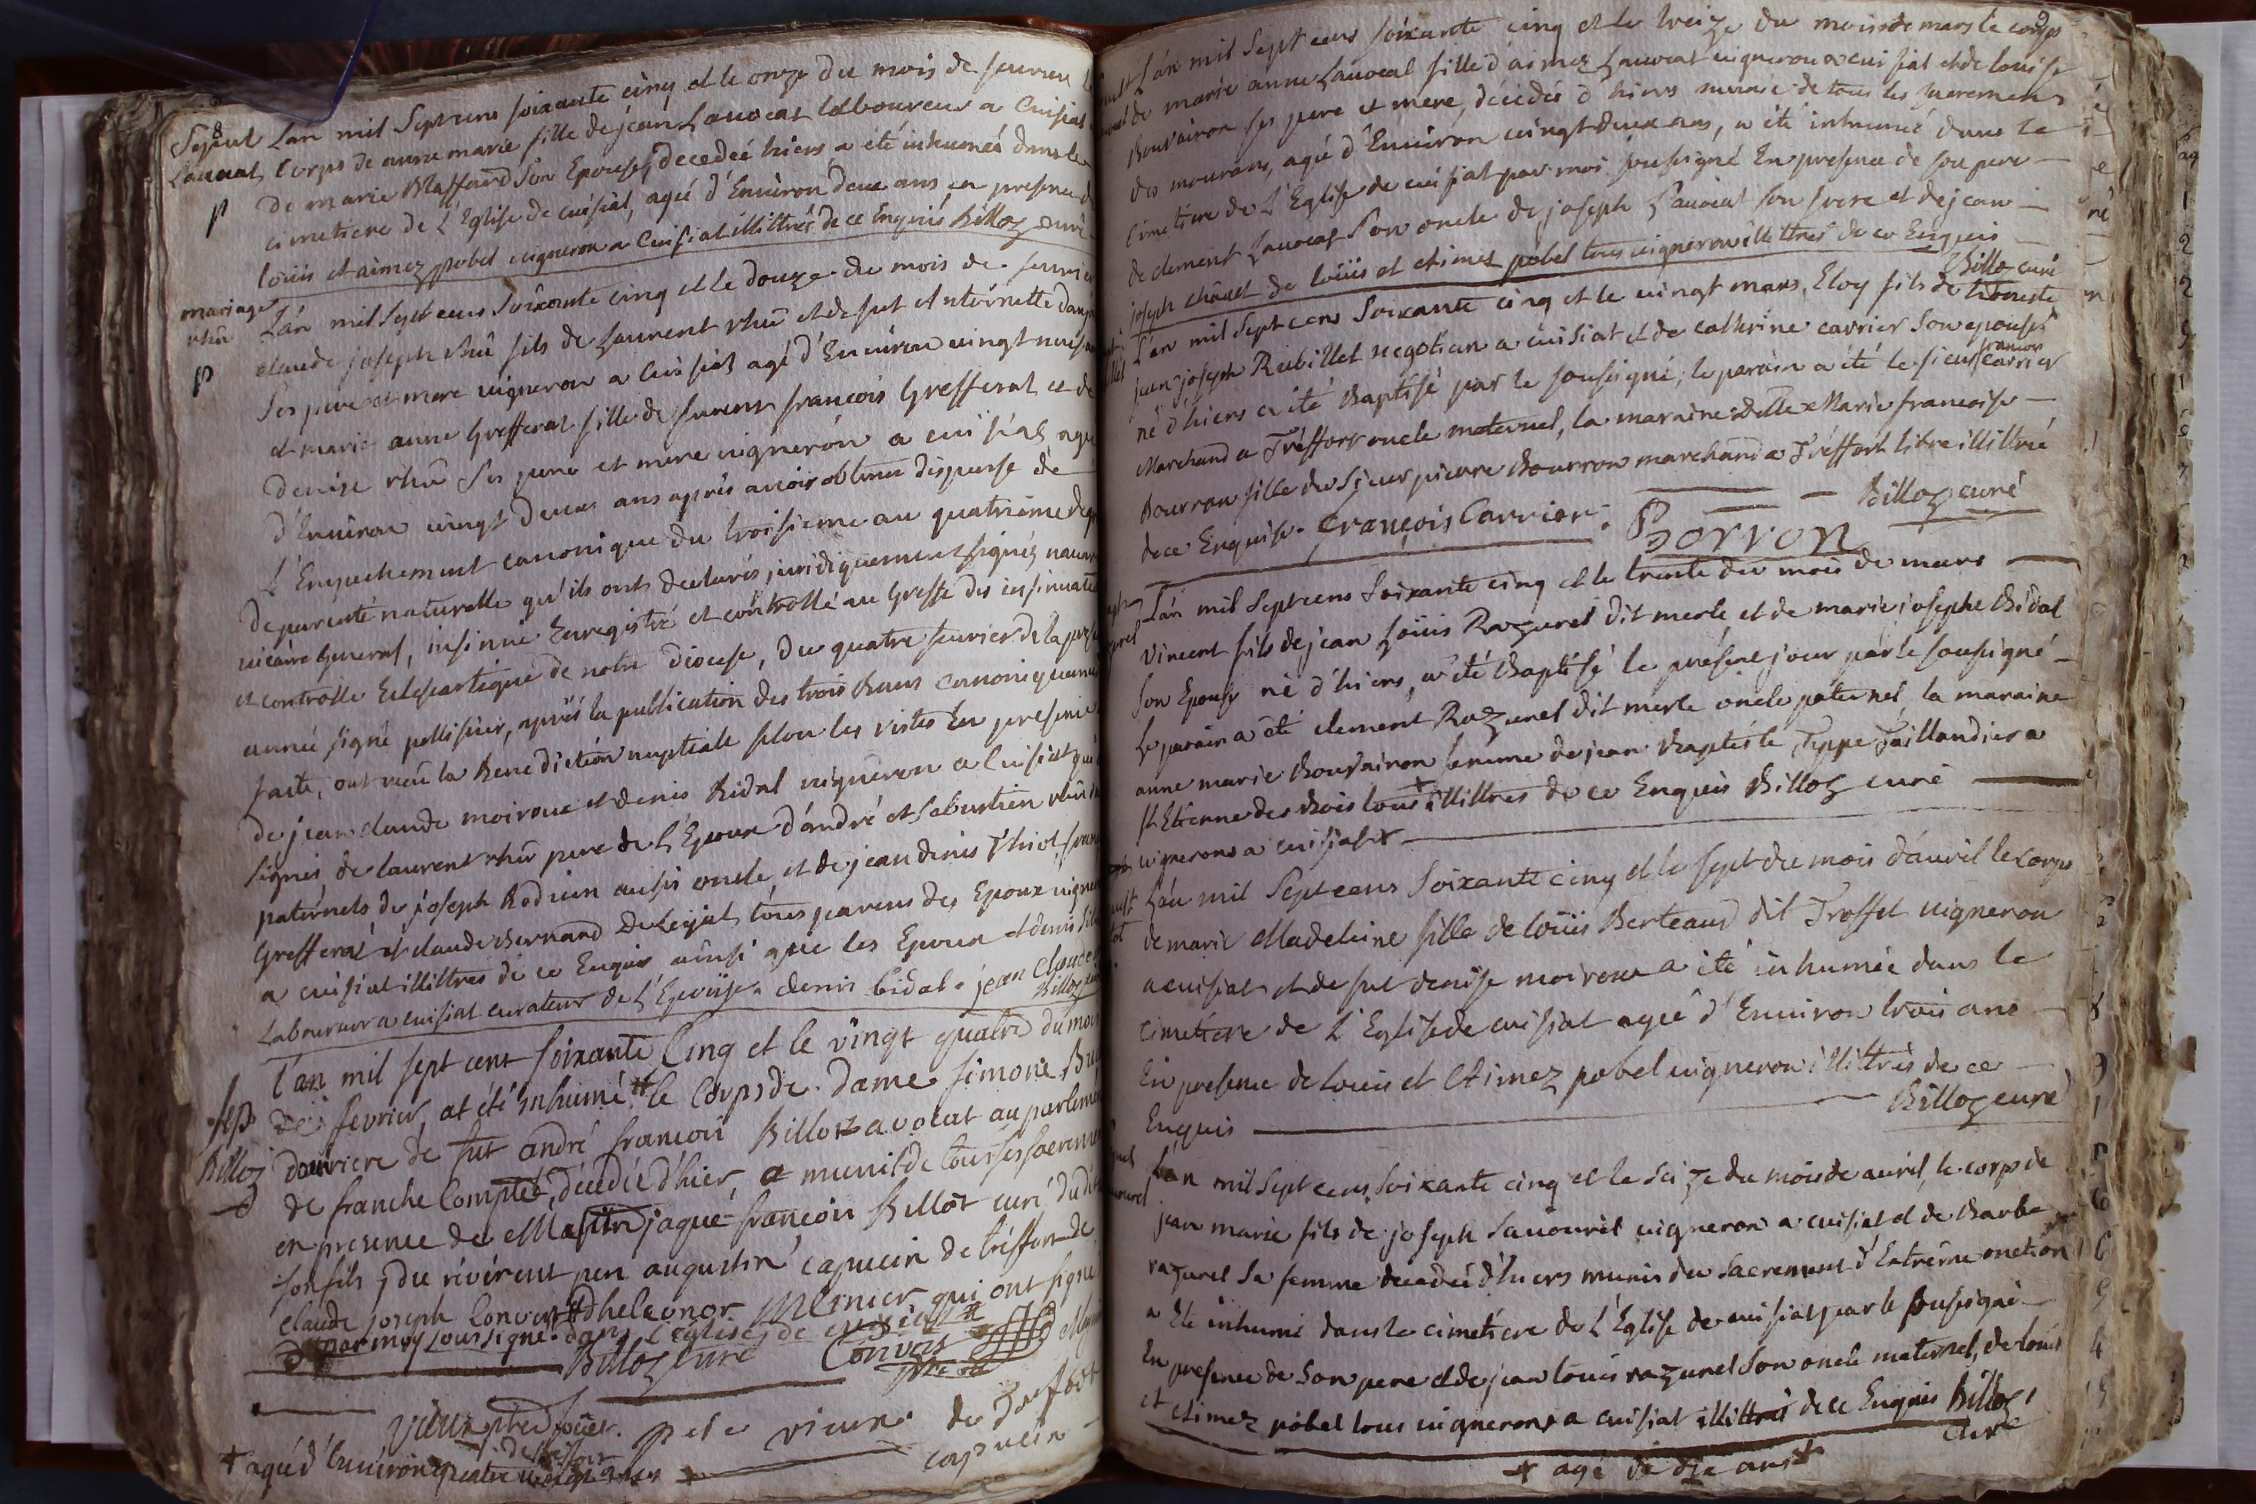 Sepult Lan mil Septcens soixante cinq et le onze du mois de feuvrier le
Lauocat Corps de anne marie fille de jean Lauocat laboureur a Cuisiat
de marie Maffand Son Epouse, decedeé hiers a été inhumeé dans le
p cimetiere de L'Eglise de cuisiat, ageé d'Environ deux ans en presence de
loüis et aimez pobel vigneron a Cuisiat illittrés de ce Enquis Billoz curé
mariage Lán mil Sept cens Soixante cinq et le douze du mois de feuvrier
rhû claude joseph rhû fils de Laurent rhû et de fut Antoinette
p Ses pere et mere vigneron a Cuisiat agé d'Environ vingt neuf
et marie anne Grefferat fille de françois Grefferat et de
denise rhû Ses pere et mere vigneron a cuisiat, ageé
d'Environ vingt deux ans aprés avoir obtenu dispense de
L'Empechement canonique du troisieme au quatrieme
de parenté naturelle qu'ils ont declarés juridiquement signéz
vicaire General, insinué Enregistré et contrôllé au Greffe des insinuations
et controlle Eclesiastique de notre diocese, du quatre feuvrier de la
anneé signé pellissier, aprés la publication des trois bans canoniquement
faite, ont reçu la Benediction nuptiale selon les rites En presence
de jean claude moiroux et denis Bidal vigneron a Cuisiat
signés de laurent rhû pere de L'Epoux d'andré et Sebastien rhû
paternels de joseph Rodien aussi oncle, et de jean denis Thiot
Grefferat et claude Bernard De Lejat tous parens des Epoux
a cuisiat illittrés de ce Enquis ainsi que les Epoux et denis
Laboureur a cuisiat curateur de L'Epouse. denis bidal. jean Claude
Billoz
L'an mil sept cent soixante Cinq et le vingt quatre du mois
sep de fevrier, at été inhumé # le Corps de dame simone
Billoz doüriere de fut andré françois Billot avocat au parlement
de franche Compté, décédée d'hier, munis de tous ses sacremens
en presence de jaque françois Billot curé
son fils, du révérent pere augustin capucin de tréffort de
claude joseph Convers # dheleonor Menier qui ont signé
par moy soursigné. dans L'église de cuisiat #
Billoz curé Convers
Vieux
pele vieux. de Treffort
capucin
+ agé d'Environ quatre vingt ans +
L'an mil Sept cens soixante cinq et le treize du mois de mars le corps
de marie anne Lauocat fille d'aimez Lauocat vigneron a cuisiat et de louise
Bouvairon ses pere et mere, décédeé d'hiers munie de tous les sacremens
des mourans, ageé d'Environ vingt deux ans, a été inhumeé dans le
cimetiere de L'Eglise de cuisiat par moi soussigné En presence de son pere
de clement Lauocat Son oncle de joseph Lauocat son frere et de jean
joseph Chanet de loüis et Aimez pobel tous vigneron illittrés de ce Enquis
Billoz curé
L'an mil Sept cens Soixante cinq et le vingt mars, Eloy fils de honeste
jean joseph Rubillet negotian a cuisiat et de cathrine carrier Son epouse
né d'hiers a été Baptisé par le soussigné; le parain a été le sieur françois carrier
Marchand a Tréffort oncle maternel, la maraine delle Marie francoise
Bourron fille du Sieur pierre Bourron marchand a Tréffort libre illittrée
de ce Enquise. françois Carrier. Borron Billoz curé
Lán mil Septcens Soixante cinq et le trente du mois de mars
Vincent fils de jean Loüis Razurel dit merle et de marie josephe Bidal
son Epouse né d'hiers, a été Baptisé le présent jour par le soussigné
Le parain a été clement Razurel dit merle oncle paternel, la maraine
anne marie Bouvairon femme de jean Baptiste Teppe Taillandier a
St Etienne des Bois tous + illittres de ce Enquis Billoz curé
vigneron a cuisiat +
Lán mil Septcens Soixante cinq et le sept du mois d'avril le corps
de marie Madeleine fille de loüis Berteaud dit Troffet vigneron
a cuisiat et de fut denise moiroux a été inhumée dans le
cimetiere de L'Eglise de cuisiat ageé d'Environ trois ans
En presence de louis et Aimez pobel vigneron illittrés de ce
Enquis Billoz curé
Lán mil Septcens Soixante cinq et le seize du mois de avril, le corps de
jean marie fils de joseph Sauourel vigneron a cuisiat et de Barbe
razurel Sa femme decedeé d'hiers munis du sacrement d'Extrême onction
a été inhumé dans le cimetiere de L'Eglise de cuisiat par le soussigné
En presence de son pere et de jean louis razurel Son oncle maternel, de louis
et Aimez pobel tous vignerons a cuisiat illittrés de ce Enquis Billoz
curé
+ agé de dix ans +